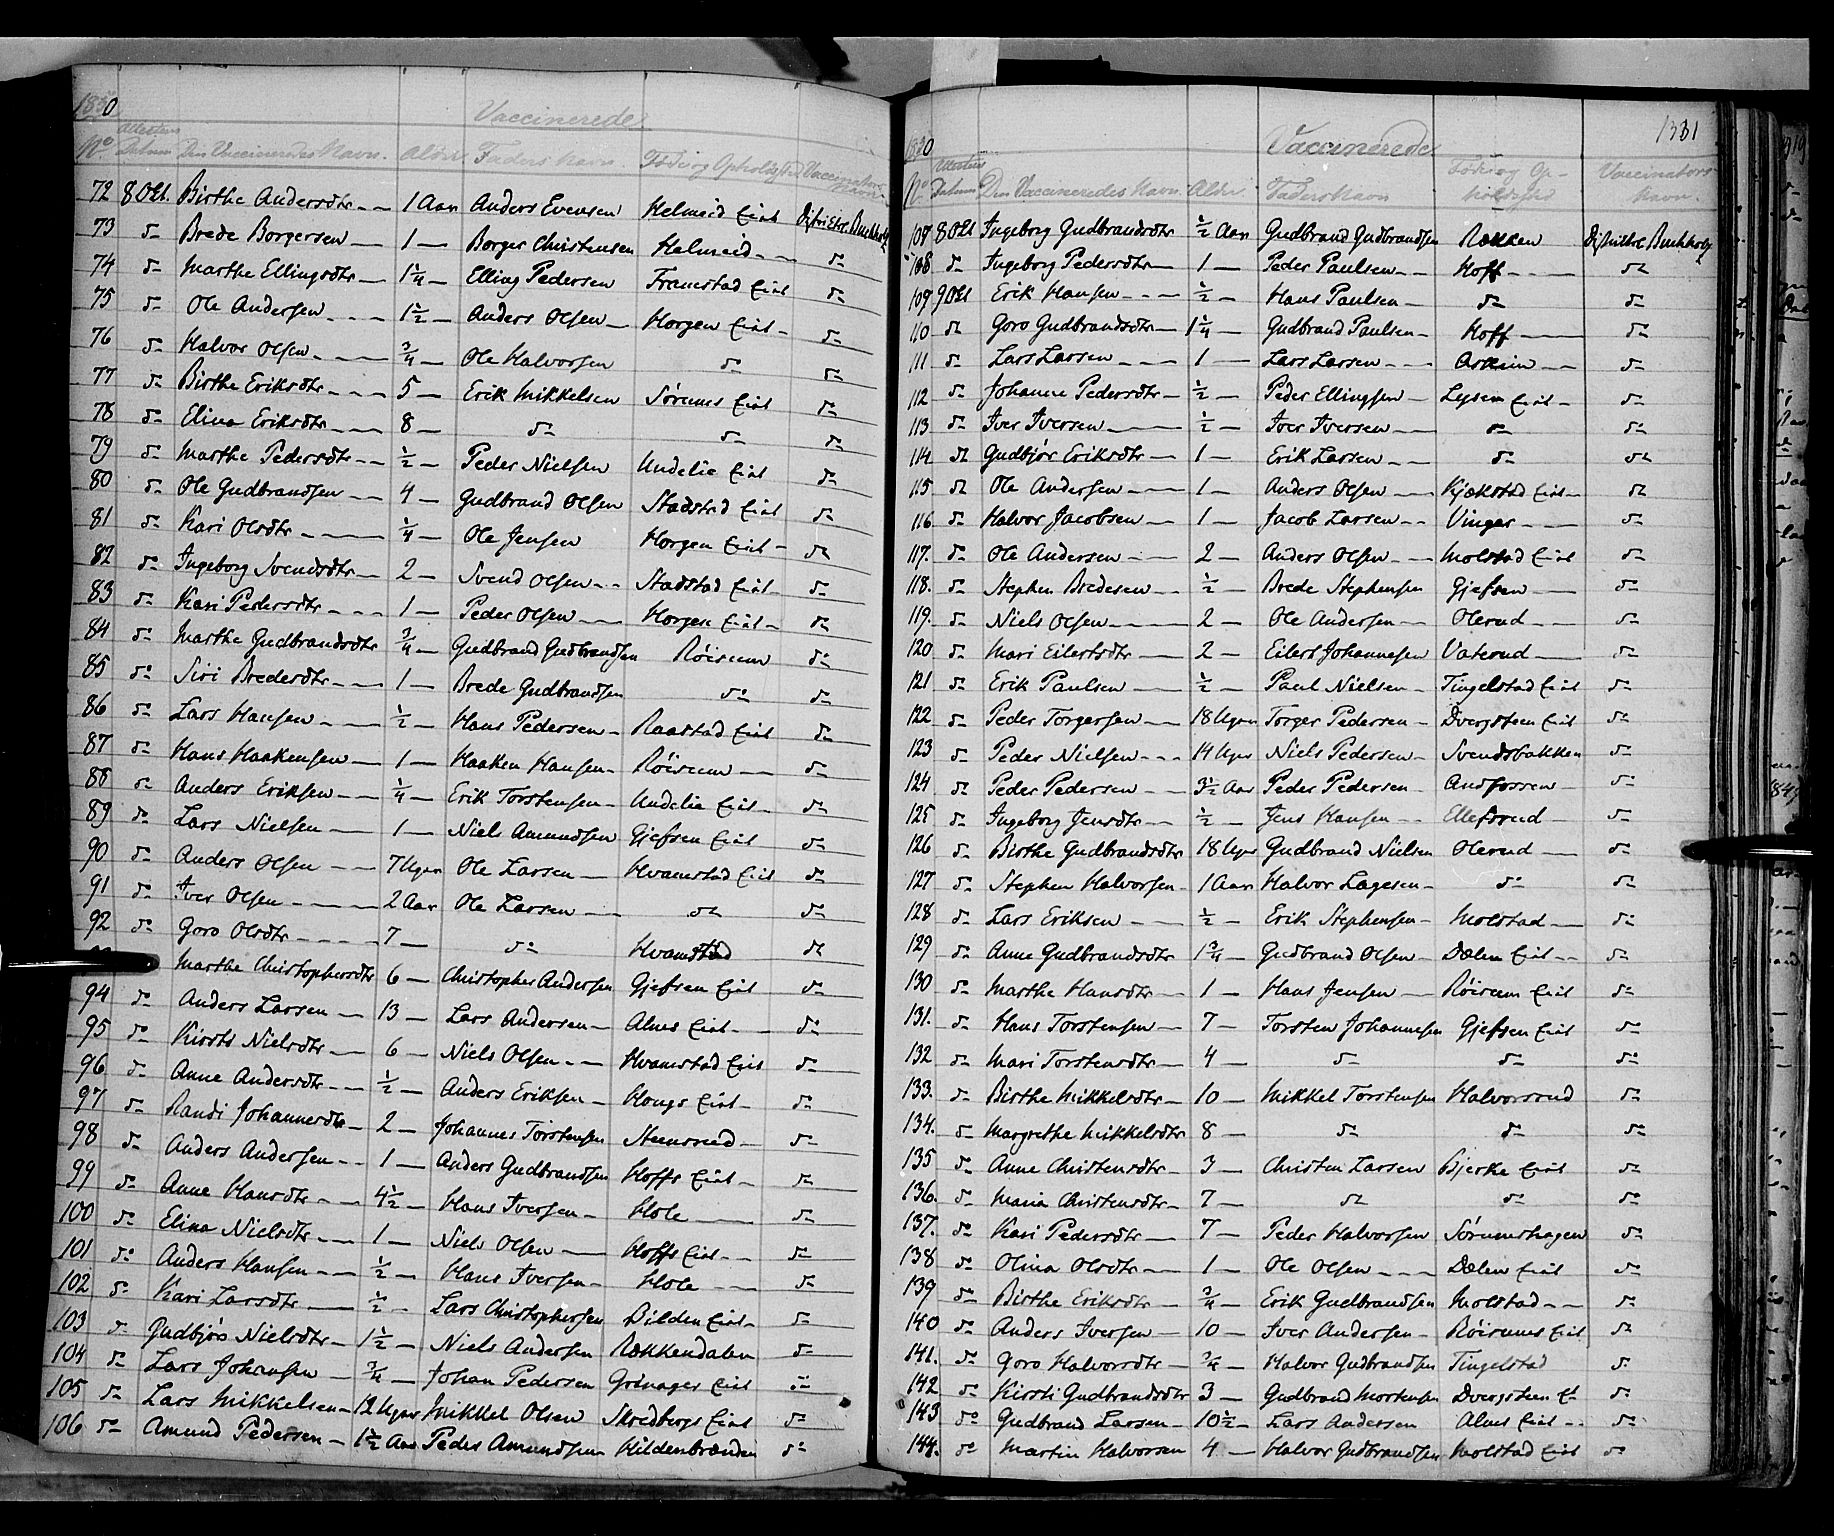 1830 Vaccinerede
No Attestens Datum Den Vaccineredes Navn. Alder Faders Navn Føde og Opholdsted Vaccinators Navn
72 8 Okt. Birthe Andersdtr 1 Aar Anders Evensen Helmeid Eiet Districtsc. Buchholz
73 do Brede Borgersen 1 Borger Christensen Helmeid do
74 do Marthe Ellingsdtr 1¼ Elling Pedersen Framstad Eiet do
75 do Ole Andersen 1½ Anders Olsen Horgen Eiet do
76 do Halvor Olsen ¾ Ole Halvorsen do do
77 do Birthe Eriksdtr 5 Erik Mikkelsen Sørumes Eiet do
78 do Elina Eriksdtr 8 do do do
79 do Marthe Pedersdtr ½ Peder Nielsen Undelie Eiet do
80 do Ole Gudbrandsen 4 Gudbrand Olsen Stadstad Eiet do
81 do Kari Olsdtr ¼ Ole Jensen Horgen Eiet do
82 do Ingeborg Svendsdtr 2 Svend Olsen Stadstad Eiet do
83 do Kari Pedersdtr 1 Peder Olsen Horgen Eiet do
84 do Marthe Gudbrandsdtr ¾ Gudbrand Gudbrandsen Røisum do
85 do Siri Bredesdtr 1 Brede Gudbrandsen do do
86 do Lars Hansen ½ Hans Pedersen Raastad Eiet do
87 do Hans Haakensen 1 Haaken Hansen Røisum do
88 do Anders Eriksen ¼ Erik Torstensen Undelie Eiet do
89 do Lars Nielsen 1 Niels Amundsen Gjefsen Eiet do
90 do Anders Olsen 7 Uger Ole Larsen Hvamstad Eiet do
91 do Iver Olsen 2 Aar Ole Larsen do do
92 do Goro Olsdtr 7 do Hvamstad do
Marthe Christophersdtr 6 Christopher Andersen Gjefsen Eiet do
94 do Anders Larsen 13 Lars Andersen Alnes Eiet do
95 do Kirsti Nielsdtr 6 Niels Olsen Hvamstad Eiet do
96 do Anne Andersdtr ½ Anders Eriksen Hongs Eiet do
97 do Randi Johannesdtr 2 Johannes Torstensen Steensrud do
98 do Anders Andersen 1 Anders Gudbrandsen Hoffs Eiet do
99 do Anne Hansdtr 4½ Hans Iversen Hole do
100 do Elina Nielsdtr 1 Niels Olsen Hoffs Eiet do
101 do Anders Hansen ½ Hans Iversen Hole do
102 do Kari Larsdtr ½ Lars Christophersen Bilden Eiet do
103 do Gudbjør Nielsdtr 1½ Niels Andersen Rækkendalen do
104 do Lars Johansen ¾ Johan Pedersen Grinager Eiet do
105 do Lars Mikkelsen 12 Uger Mikkel Olsen Skredbergs Eiet do
106 do Amund Pedersen 1½ Aar Peder Amundsen Kildenbranden do
1830 Vaccinerede 1331
No Attestens Datum Den Vaccineredes Navn Alder Faders Navn Føde og Opholdsted Vaccinators Navn.
107 8 Okt Ingeborg Gudbrandsdtr ½ Aar Gudbrand Gudbrandsen Rækken Districtsc Buchholz
108 do Ingeborg Pedersdtr 1 Peder Paulsen Hoff do
109 9 Okt Erik Hansen ½ Hans Paulsen do do
110 do Goro Gudbrandsdtr 1¼ Gudbrand Paulsen Hoff do
111 do Lars Larsen 1 Lars Larsen Askim do
112 do Johanne Pedersdtr ½ Peder Ellingsen Lysen Eiet do
113 do Iver Iversen ½ Iver Iversen do do
114 do Gudbjør Eriksdtr 1 Erik Larsen do do
115 do Ole Andersen 1 Anders Olsen Kjækstad Eiet do
116 do Halvor Jacobsen 1 Jacob Larsen Vinger do
117. do Ole Andersen 2 Anders Olsen Molstad Eiet do
118. do Stephen Bredesen ½ Brede Stephensen Gjefsen do
119. do Niels Olsen 2 Ole Andersen Olerud do
120 do Mari Eilertsdtr 2 Eilert Johannesen Vaterud do
121 do Erik Paulsen ½ Paul Nielsen Tingelstad Eiet do
122 do Peder Torgersen 18 Uger Torger Pedersen Dvergsteen Eiet do
123 do Peder Nielsen 14 Uger Niels Pedersen Svendsbakken do
124 do Peder Pedersen 3½ Aar Peder Pedersen Andfossen do
125 do Ingeborg Jensdtr ½ Jens Hansen Ellefsrud do
126 do Birthe Gudbrandsdtr 18 Uger Gudbrand Nielsen Olerud do
127 do Stephen Halvorsen 1 Aar Halvor Lagesen do do
128 do Lars Eriksen ½ Erik Stephensen Molstad do
129 do Anne Gudbrandsdtr 1¾ Gudbrand Olsen Dælen Eiet do
130 do Marthe Hansdtr 1 Hans Jensen Røisum Eiet do
131. do Hans Torstensen 7 Torsten Johannesen Gjefsen Eiet do
132 do Mari Torstensdtr 4 do do do
133. do Birthe Mikkelsdtr 10 Mikkel Torstensen Halvorsrud do
134. do Margrethe Mikkelsdtr 8 do do do
135 do Anne Christensdtr 3 Christen Larsen Bjerke Eiet do
136. do Maria Christensdtr 7 do do do
137. do Kari Pedersdtr 7 Peder Halvorsen Sørumshagen do
138 do Olina Olsdtr 1 Ole Olsen Dælen Eiet do
139 do Birthe Eriksdtr ¾ Erik Gudbrandsen Molstad do
140 do Anders Iversen 10 Iver Andersen Røisums Eiet do
141. do Goro Halvorsdtr ¾ Halvor Gudbrandsen Tingelstad do
142 do Kirsti Gudbrandsdtr 3 Gudbrand Mortensen Dvergsteen Et do
143 do Gudbrand Larsen 10½ Lars Andersen Alnes Eiet do
144. do Martin Halvorsen 4 Halvor Gudbrandsen Molstad Eiet do